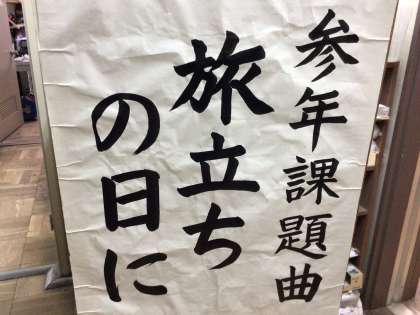 参年課題曲
旅立ち
の日に